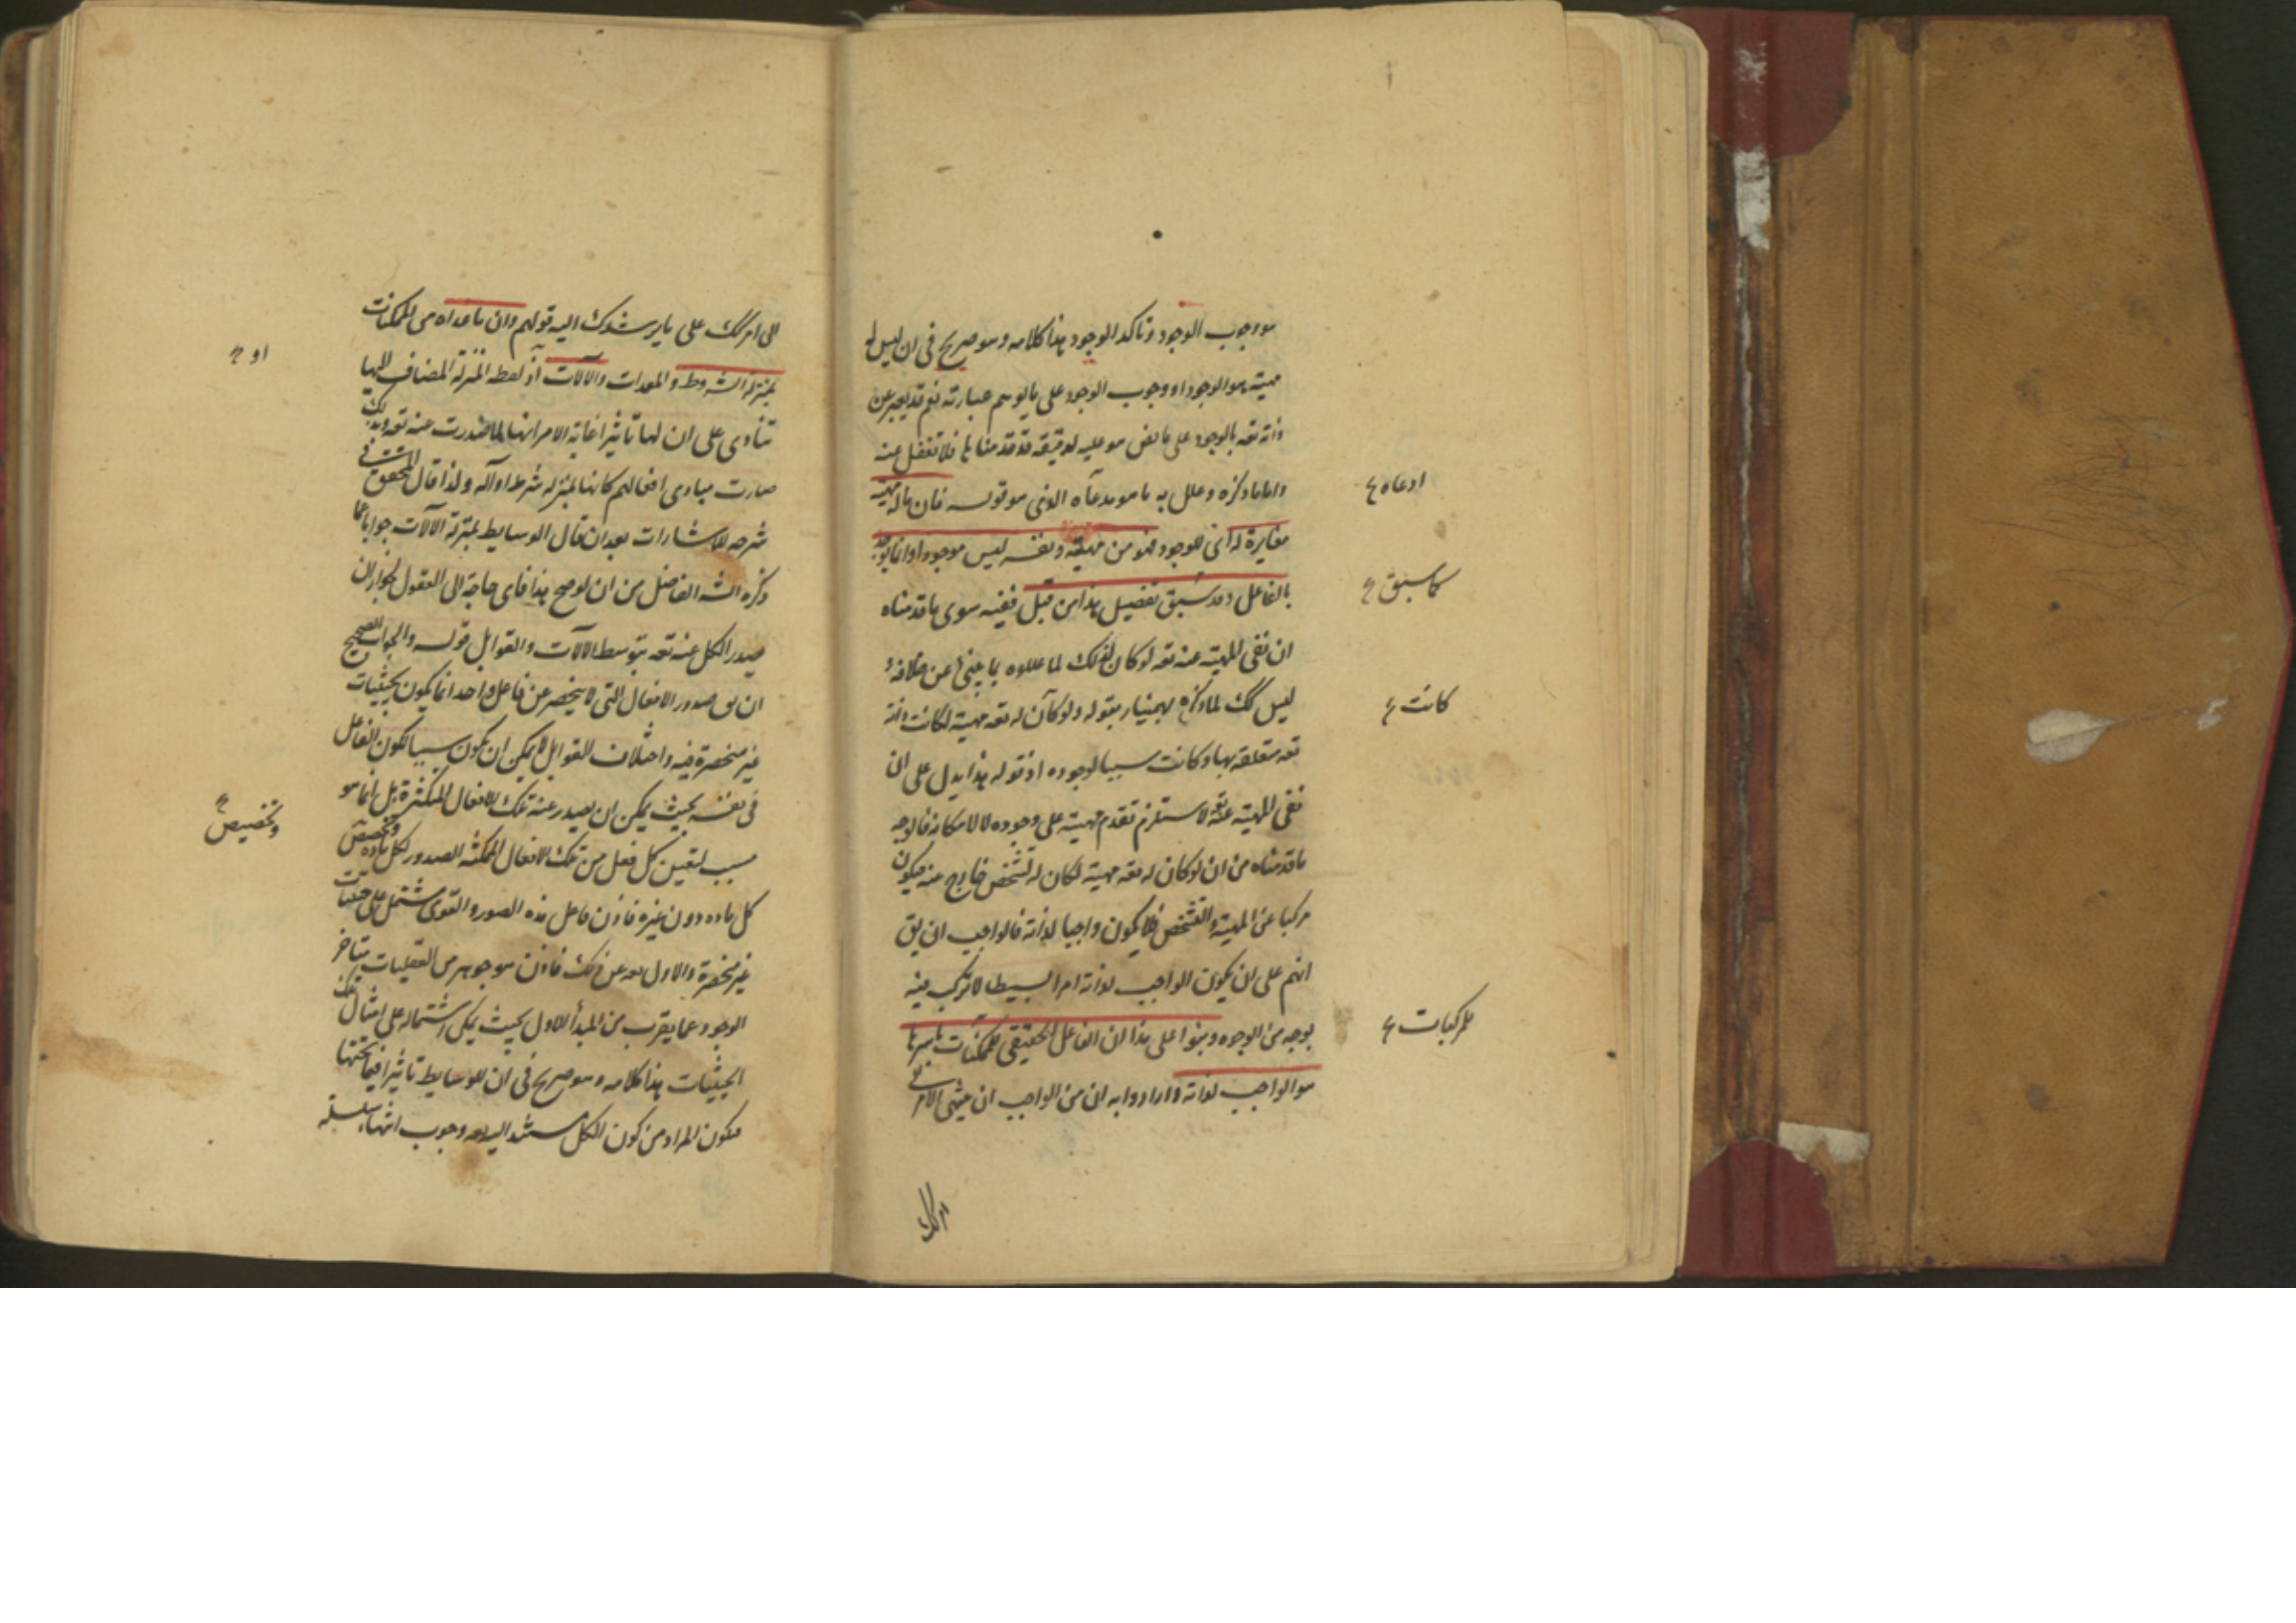 هو وجوب الوجود وتأكد الوجود هذا كلامه وهو صريح فى ان ليس له
مهيته هو الوجود او وجوب الوجود على ما يوهم عبارته نعم قد يعبر عن
ذاته تعه بالوجود على ما نص هو عليه لدقيقة قد قدمناها فلا تغفل عنه
واما ما ذكره وعلل به ما هو مدعاه الذى هو قوله فان ما له مهية
ادعاه
مغايرة له انى للوجود فهو من مهيته ونفسه ليس موجودا وانما يوجد
بالفاعل وقد سبق تفصيل هذا من قبل ففيه سوى ما قدمناه
كما سبق
ان نفى المهية عنه تعه لو كان لذلك لما عللوه بما يبنى عن خلافه
ليس كك لما ذكره بهمنيار بقوله ولو كان له تعه مهية لكانت ذاته
كانت
تعه متعلقة بها وكانت سببا لوجوده اذ قوله هذا يدل على ان
نفى المهية عنه تعه لاستلزم تقدم مهيته على وجوده لا لامكانه فالوجه
ما قدمناه من ان لو كان له تعه مهية لكان له تشخص خارج عنه فيكون
مركبا من المهية والتشخص فلا يكون واجبا لذاته فالواجب ان يق
انهم على ان يكون الواجب لذاته امرا بسيطا لا تركب فيه
بوجه من الوجوه وبنوا على هذا ان الفاعل الحقيقى للممكنات باسرها
للمركبات
هو الواجب لذاته وارادوا به ان من الواجب ان ينتهى الامر الى
الى امر كك على ما يرشدك اليه قولهم وان ما عداه من الممكنات
بمنزلة الشروط والمعدات والآلات اذ لفظه المنزلة المضاف اليها
او
تنادى على ان لها تاثيرا غاية الامر انها لما صدرت عنه تعه
صارت مبادى افعالهم كانها بمنزلة شرط او آلة ولذا قال المحقق فى
شرحه للاشارات بعد ان قال الوسايط بمنزلة الآلات جوابا عما
ذكره الشه الفاضل من ان لو صح هذا فاى حاجة الى العقول لجواز ان
يصدر الكل عنه تعه بتوسط الآلات والقوابل قوله والجواب الصحيح
ان يق صدور الافعال التى لا ينحصر عن فاعل واحد انما يكون بحيثيات
غير منحصرة فيه واختلاف القوابل لا يمكن ان يكون سببا لكون الفاعل
فى نفسه بحيث يمكن ان يصدر عنه تلك الافعال المتكثرة بل انما هو
سبب لتعين كل فعل من تلك الافعال الممكنة الصدور لكل مادة وتخصص
وتخصيص
كل مادة دون غيره فاذن فاعل هذه الصور والقوى مشتمل على حيثيات
غير منحصرة والاول تعه عن ذلك فاذن هو جوهر من العقليات متاخر
الوجود عما يقرب من المبدأ الاول بحيث يمكن اشتماله على امثال تلك
الحيثيات هذا كلامه وهو صريح فى ان للوسايط تاثيرا فيما تحتها
فيكون المراد من كون الكل مستندا اليه تعه وجوب انتهاء سلسلة